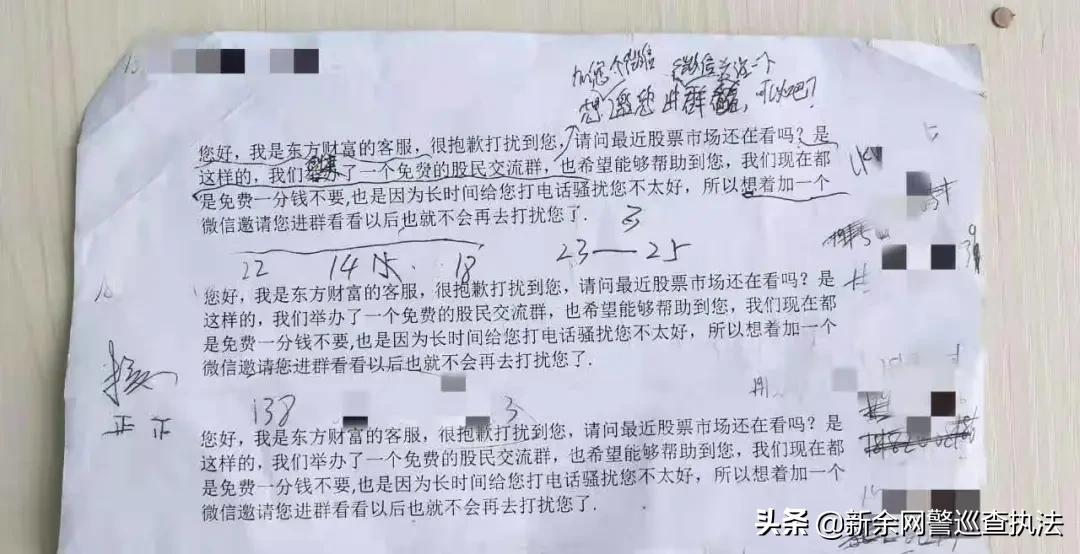 加您个微信
想邀您进群
可以吧?
您好，我是东方财富的客服，很抱歉打扰到您，请问最近股票市场还在看吗？是
这样的，我们了一个免费的股民交流群，也希望能够帮助到您，我们现在都
是免费一分钱不要,也是因为长时间给您打电话骚扰您不太好，所以想着加一个
微信邀请您进群看看以后也就不会再去打扰您了.
3
22 14 15 18 23—25
您好，我是东方财富的客服，很抱歉打扰到您，请问最近股票市场还在看吗？是
这样的，我们举办了一个免费的股民交流群，也希望能够帮助到您，我们现在都
是免费一分钱不要,也是因为长时间给您打电话骚扰您不太好，所以想着加一个
微信邀请您进群看看以后也就不会再去打扰您了.
正 正
138 3
您好，我是东方财富的客服，很抱歉打扰到您，请问最近股票市场还在看吗？是
这样的，我们举办了一个免费的股民交流群，也希望能够帮助到您，我们现在都
是免费一分钱不要,也是因为长时间给您打电话骚扰您不太好，所以想着加一个
微信邀请您进群看看以后也就不会再去打扰您了.
头条 @新余网警巡查执法